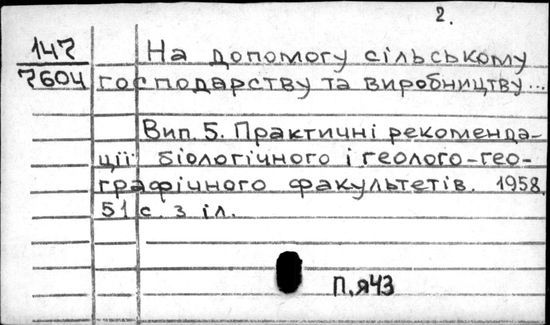 2.
147
7604
На допомогу сільському
господарству та виробництву...
Вип. 5. Практичні рекоменда-
ції біологічного і геолого-гео-
графічного факультетів. 1958.
51 с. з іл.
П.я43